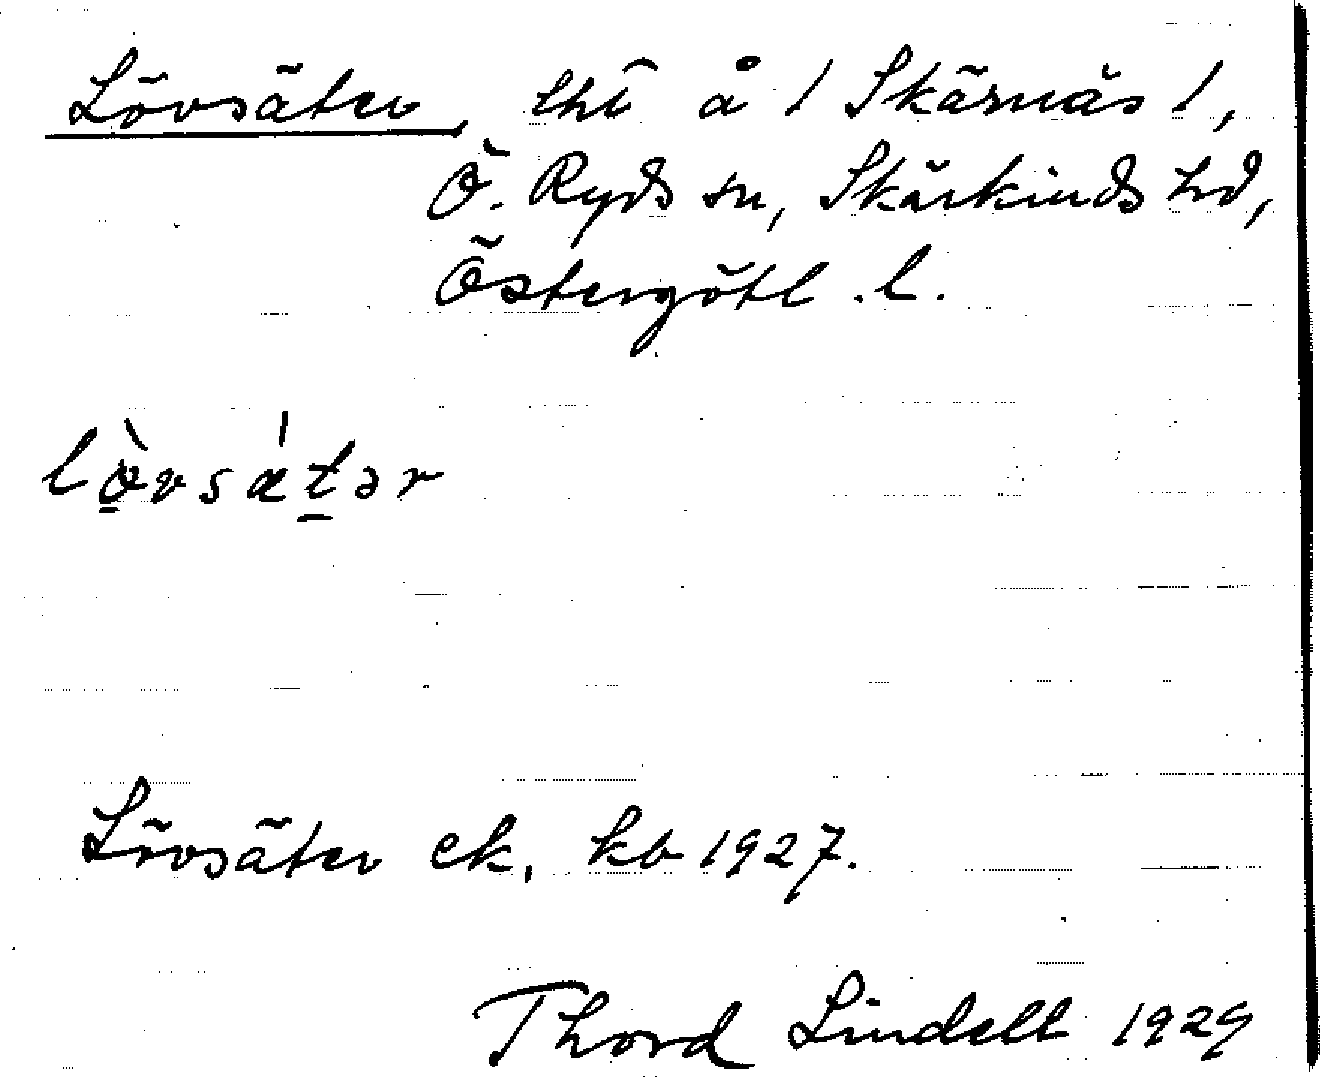 Lövsäter, thi å 1 Skärnäs 1,
Ö. Ryds sn, Skärkinds hd,
Östergötl. l.
lö̀vsätər
Lövsäter ek. kb 1927.
Thord Lindell 1929